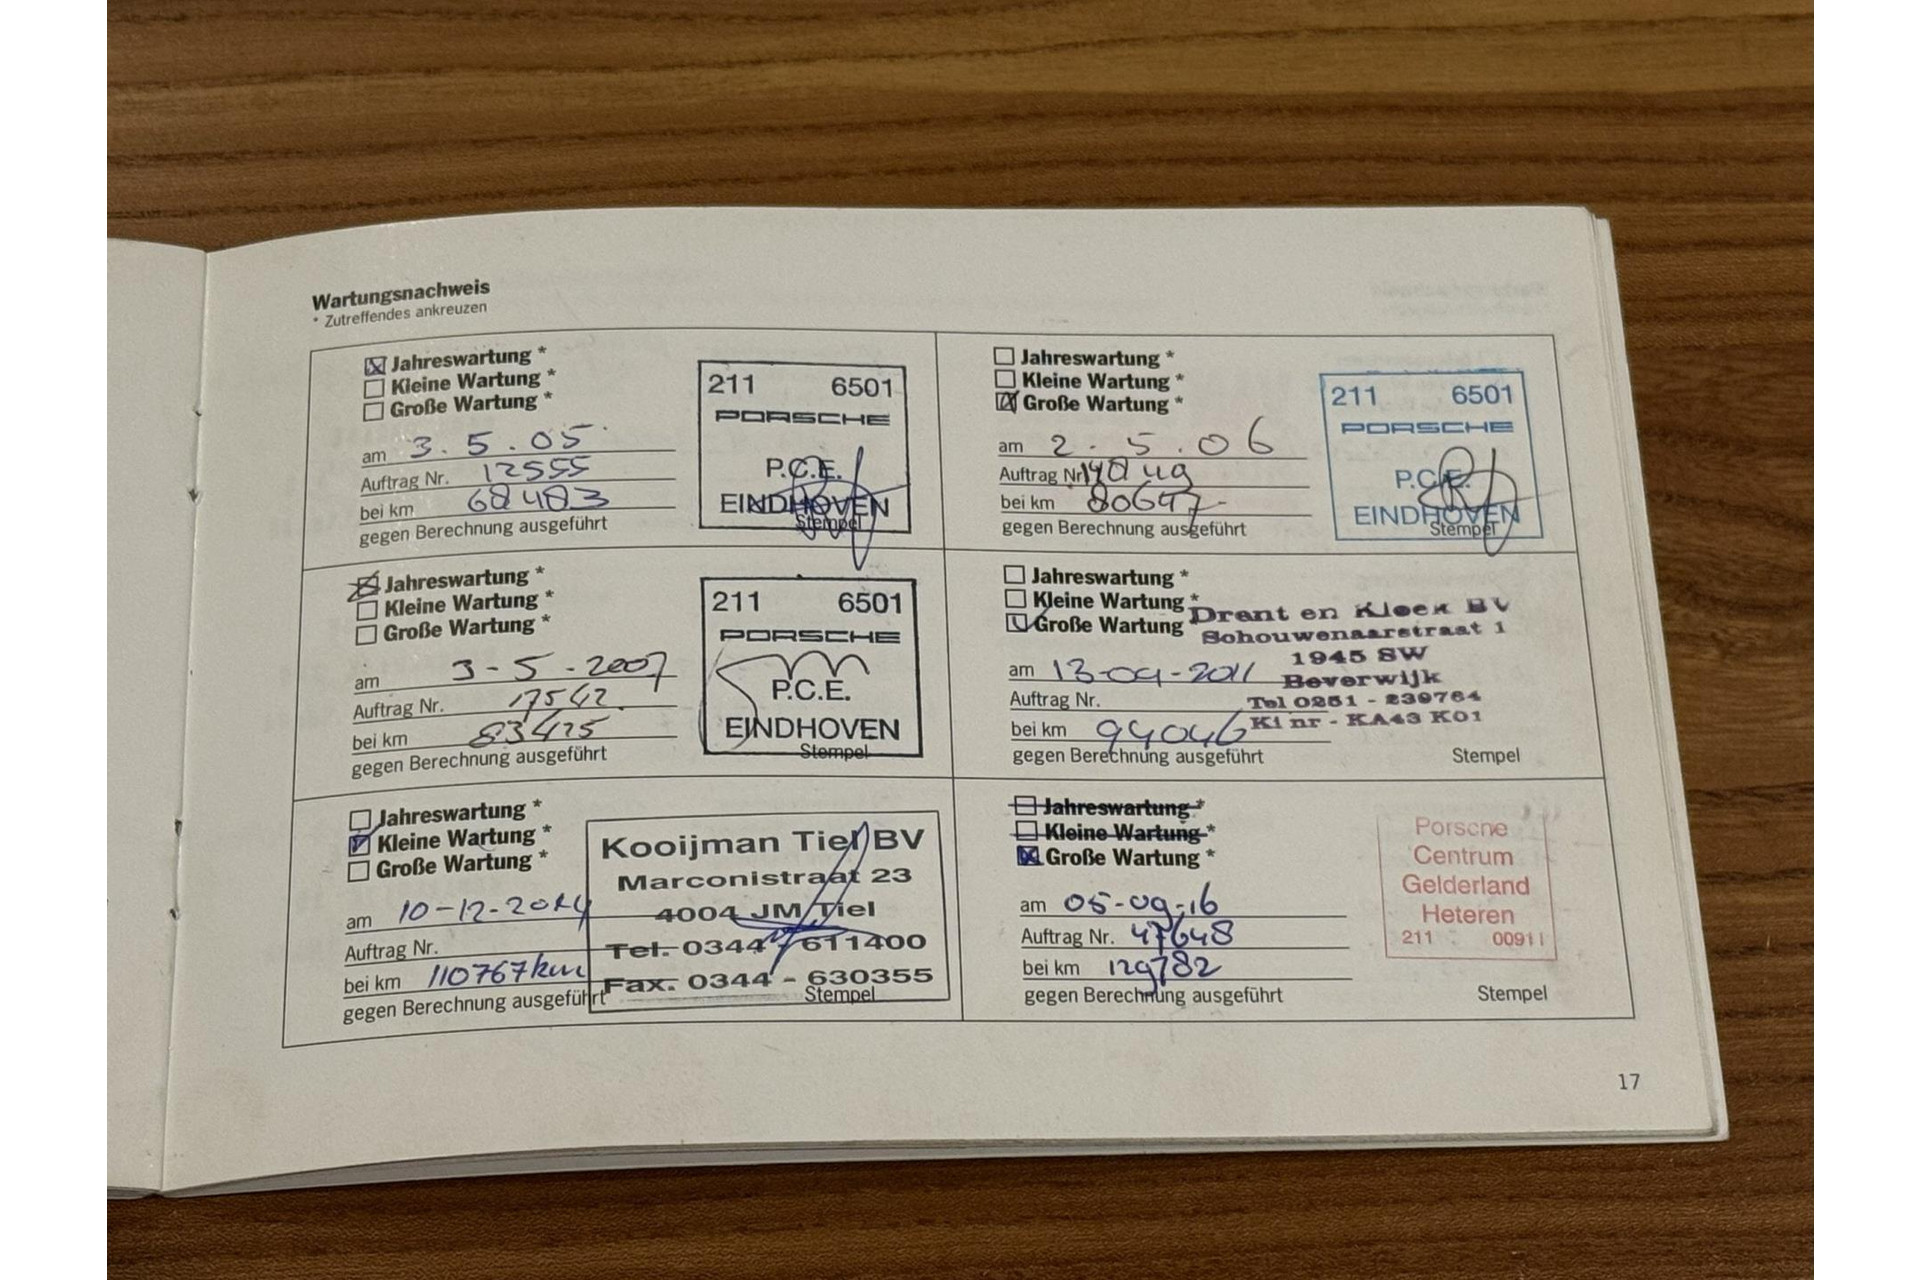 Wartungsnachweis
* Zutreffendes ankreuzen
Jahreswartung *
Kleine Wartung *
Große Wartung *
am 3.5.05
Auftrag Nr. 12555
bei km 68483
gegen Berechnung ausgeführt
211 6501
PORSCHE
P.C.E.
EINDHOVEN
Stempel
Jahreswartung *
Kleine Wartung *
Große Wartung *
am 2.5.06
Auftrag Nr.
bei km 80647
gegen Berechnung ausgeführt
211 6501
PORSCHE
P.C.E.
EINDHOVEN
Stempel
Jahreswartung *
Kleine Wartung *
Große Wartung *
am 3-5-2007
Auftrag Nr. 17542
bei km 83425
gegen Berechnung ausgeführt
211 6501
PORSCHE
P.C.E.
EINDHOVEN
Stempel
Jahreswartung *
Kleine Wartung *
Große Wartung
am 13-09-2011
Auftrag Nr.
bei km 94046
gegen Berechnung ausgeführt
Drent en Kloek BV
Schouwenaarstraat 1
1945 SW
Beverwijk
Tel 0251 - 239764
KI nr - KA43 K01
Stempel
Jahreswartung *
Kleine Wartung *
Große Wartung *
am 10-12-2014
Auftrag Nr.
bei km 110767km
gegen Berechnung ausgeführt
Kooijman Tiel BV
Marconistraat 23
4004 JM Tiel
Tel. 0344 - 611400
Fax. 0344 - 630355
Stempel
Jahreswartung *
Kleine Wartung *
Große Wartung *
am 05-09-16
Auftrag Nr. 47648
bei km 129782
gegen Berechnung ausgeführt
Porsche
Centrum
Gelderland
Heteren
211 00911
Stempel
17